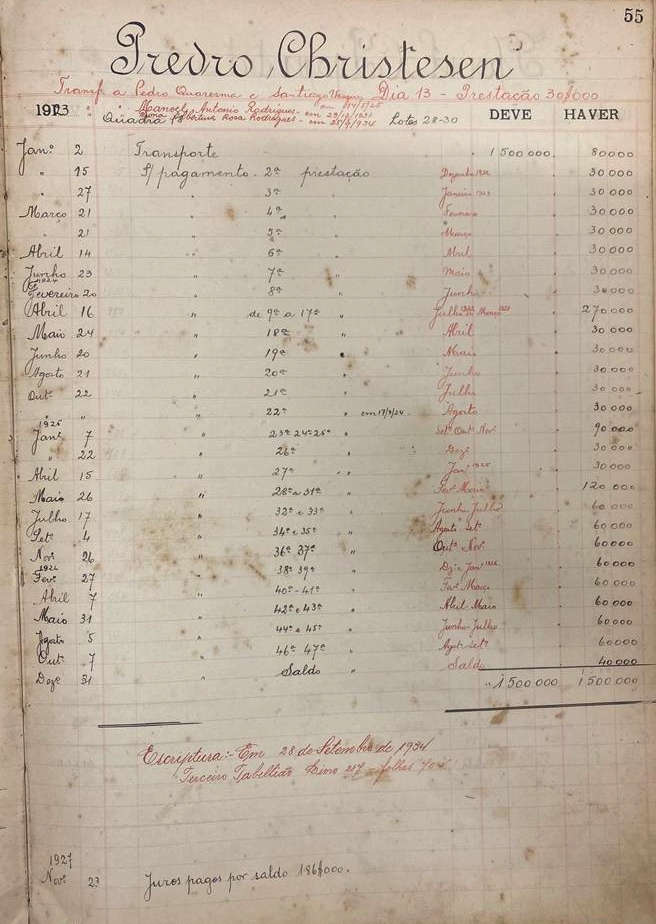 55
Predro Christesen
Transf. a Pedro Quaresma e Santiago Dia 13 - Prestação 30$000
1923 " " Manoel Antonio Rodrigues - em
Quadra Rosa Rodrigues - em Lotes 28-30 DEVE HAVER
Janº 2 Transporte 1500000 80000
" 15 P/ pagamento 2ª prestação Dezembro 1922 30000
" 27 " 3ª " Janeiro 1923 30000
Março 21 " 4ª " Fevereiro 30000
" 21 " 5ª " Março 30000
Abril 14 " 6ª " Abril 30000
Junho 23 " 7ª " Maio 30000
1924
Fevereiro 20 " 8ª " Junho 30000
Abril 16 " de 9ª a 17ª " Julho Março 270000
Maio 24 " 18ª " Abril 30000
Junho 20 " 19ª " Maio 30000
Agosto 21 " 20ª " Junho 30000
Outº 22 " 21ª " Julho 30000
" " " 22ª " em 17/9/24. Agosto 30000
1925
Janº 7 " 23ª 24ª 25ª " Setº Outº Novº 90000
" 22 " 26ª " Dezº 30000
Abril 15 " 27ª " Janº 1925 30000
Maio 26 " 28ª a 31ª " 120000
Julho 17 " 32ª e 33ª " Junho Julho 60000
Setº 4 " 34ª e 35ª " Agosto Setº 60000
Novº 26 " 36ª 37ª " Outº Novº 60000
1926
Fevº 27 " 38ª 39ª " Dzº e Janº 1926 60000
Abril 7 " 40ª - 41ª " Fevº Março 60000
Maio 31 " 42ª e 43ª " Abril Maio 60000
Agosto 5 " 44ª e 45ª " Junho-Julho 60000
Outº 7 " 46ª 47ª " Agtº setº 60000
Dezº 31 " Saldo Saldo 40000
" 1500000 1500000
Escriptura:- Em 28 de Setembro de 1934
Terceiro Tabellião - folhas
1927
Novº 23 Juros pagos por saldo 186$000.